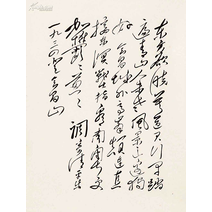 东方欲晓莫道君行早踏
遍青山人未老风景这边独
好会昌城外高峰颠连直
接东溟战士指看南粤更
加郁郁葱葱 調寄清平乐
一九三